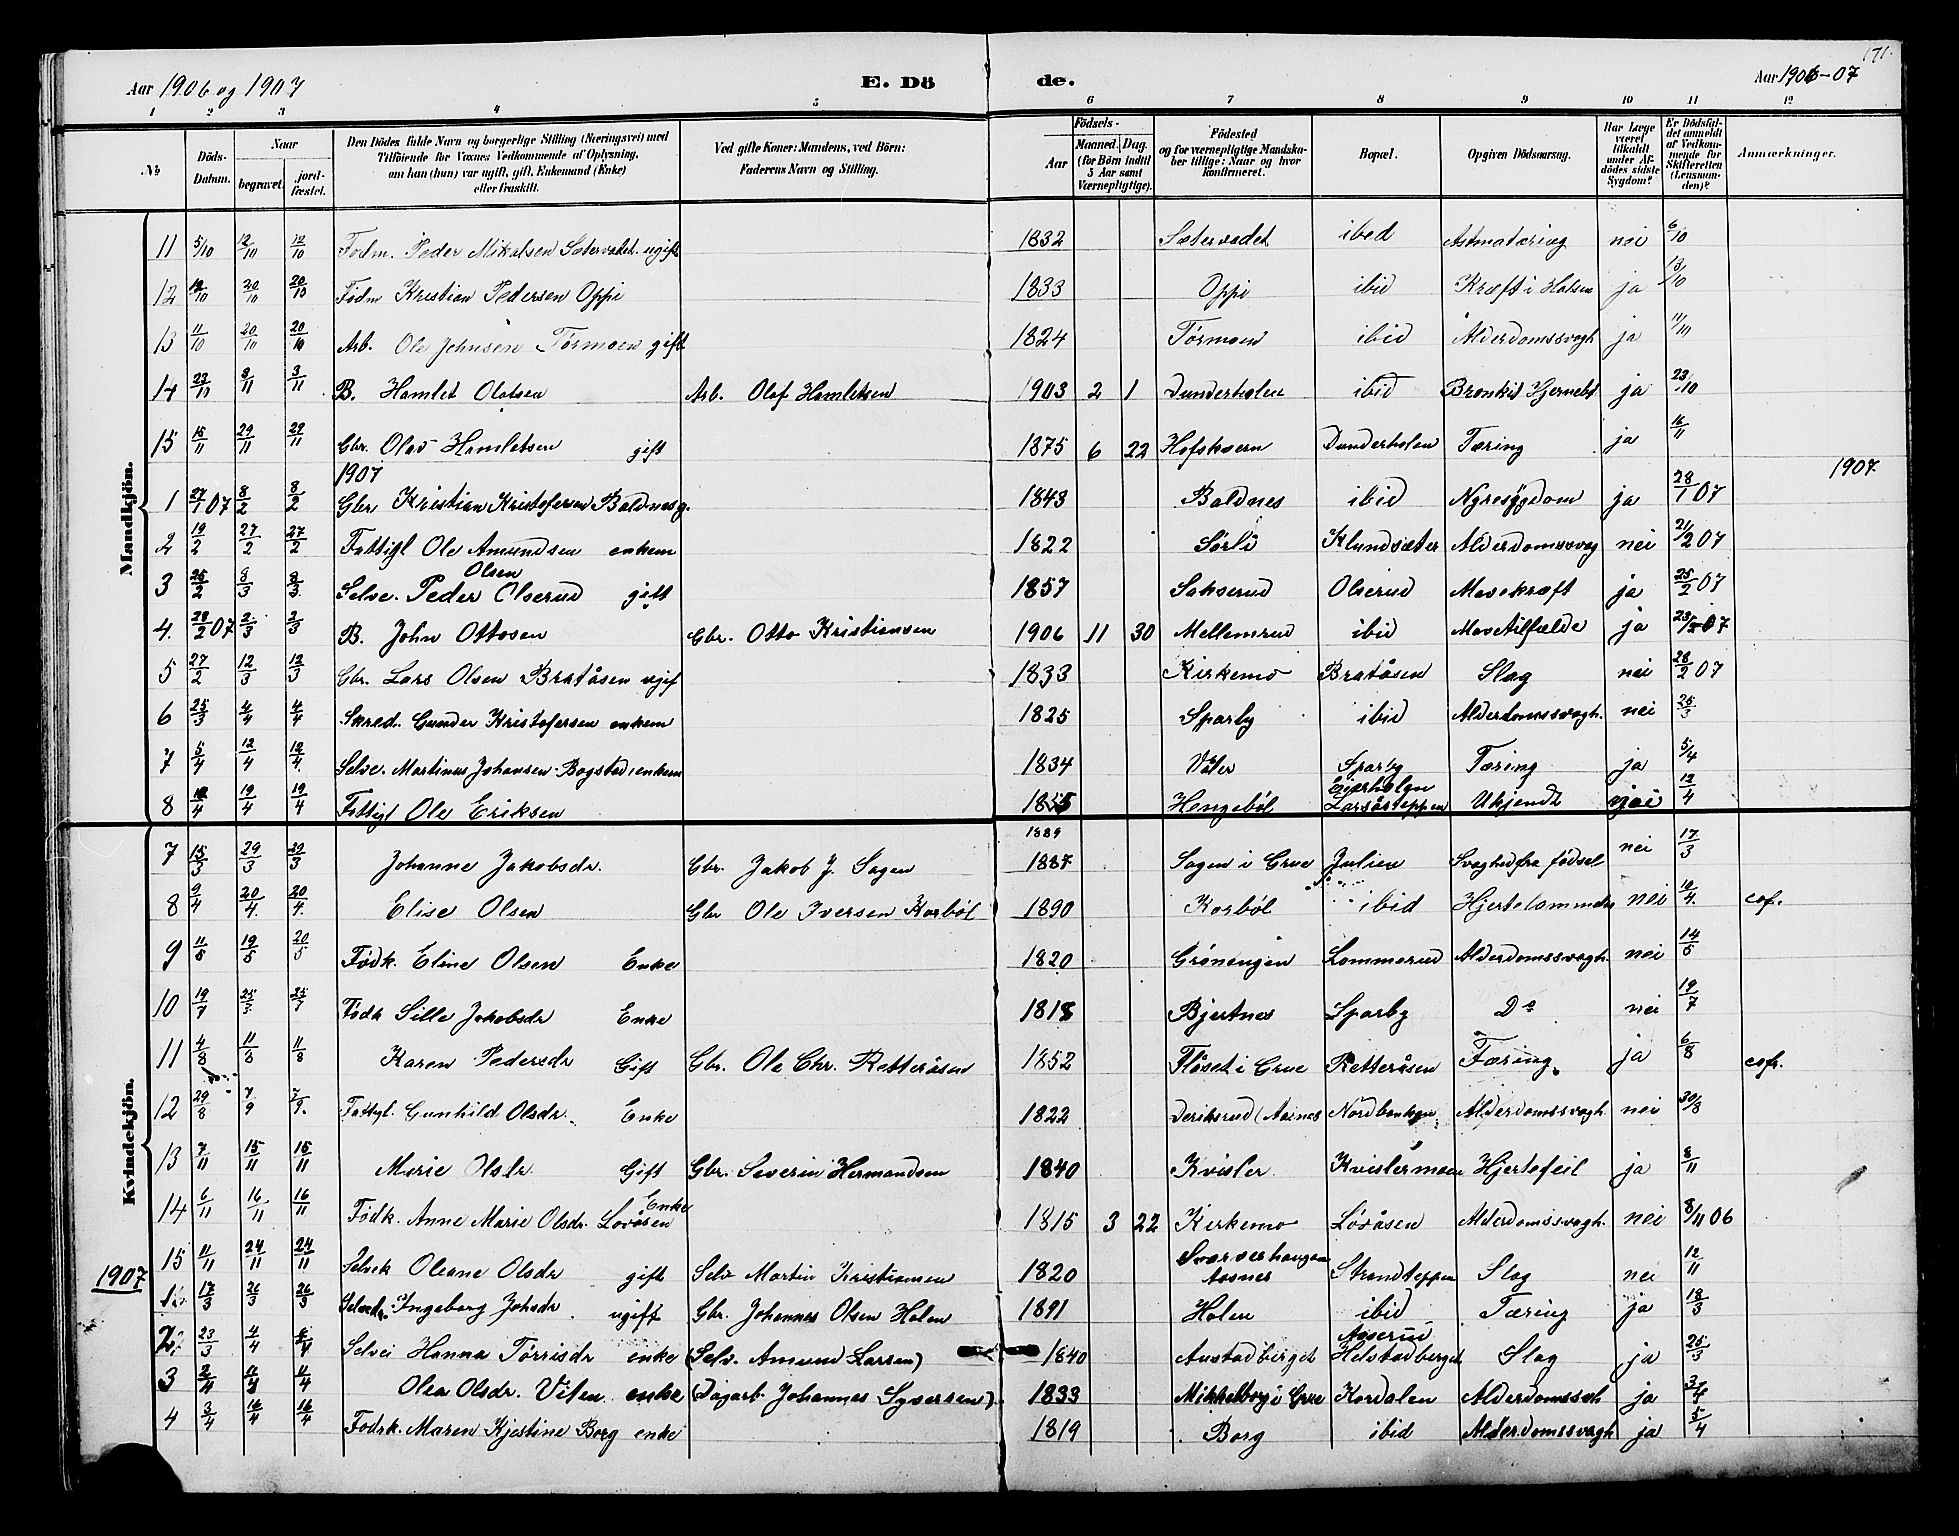 171.
Aar 1906 og 1907 E. Dö de. Aar 1906-07
1 2 3 4 5 6 7 8 9 10 11 12
No Döds-Datum. Naar begravet. jordfæstet. Den Dödes fulde Navn og borgerlige Stilling (Næringsvei) med Tilföiende for Voxnes Vedkommende af Oplysning, om han (hun) var ugift, gift, Enkemand (Enke) eller fraskilt. Ved gifte Koner: Mandens, ved Börn: Faderens Navn og Stilling. Födsels- Aar Maaned. Dag. (for Börn indtil 3 Aar samt Værnepligtige). Födested og for værnepligtige Mandskaber tillige: Naar og hvor konfirmeret. Bopæl. Opgiven Dödsaarsag. Har Læge været tilkaldt under Afdödes sidste Sygdom? Er Dödsfaldet anmeldt af Vedkommende for Skifteretten (Lensmanden)? Anmærkninger.
Mandkjön.
11 5/10 12/10 12/10 Födm. Peder Mikalsen Sætervadet ugift 1832 Sætervadet ibed Astmatæring nei 6/10
12 12/10 20/10 20/10 Födm Kristian Pedersen Oppi 1833 Oppi ibid Kræft i Halsen ja 13/10
13 11/10 20/10 20/10 Arb. Ole Johnsen Tørmoen gift 1824 Tørmoen ibid Alderdomssvagh ja 11/10
14 23/10 3/11 3/11 B. Hamlet Olafsen Arb. Olaf Hamletsen 1903 2 1 Dunderholen ibid Bronkit Hjernebt ja 23/10
15 15/11 29/11 29/11 Gbr. Olav Hamletsen gift 1875 6 22 Hofskvern Dunderholen Tæring ja 16/11
1907 1907
1 27/1 07 8/2 8/2 Gbr Kristian Kristofersen Baldnes g. 1843 Baldnes ibid Nyresygdom ja 28/1 07
2 19/2 27/2 27/2 Fattigl Ole Amundsen enkem 1822 Sørli Klundsæter Alderdomssvag nei 21/2 07
3 25/2 8/3 8/3 Selve. Peder Olsen Olserud gift 1857 Sakserud Olserud Mavekræft ja 25/2 07
4. 28/2 07 2/3 2/3 B. John Ottosen Gbr. Otto Kristiansen 1906 11 30 Mellemrud ibid Mavetilfælde ja 07
5 27/2 12/3 12/3 Gbr. Lars Olsen Bratåsen ugif 1833 Kirkemo Bratåsen Slag nei 28/2 07
6 25/3 4/4 4/4 Skred. Gunder Kristofersen enkem 1825 Sparby ibid Alderdomssvagh. nei 25/3
7 5/4 12/4 12/4 Selve. Martinus Johansen Bogstad enkem 1834 Våler Sparby Tæring ja 5/4
8 19/4 19/4 Fattigl Ole Eriksen Hengeböl Larsåsteppen Ukjendt 12/4
Kvindekjön.
1889
7 15/3 29/3 29/3 Johanne Jakobsdr. Gbr. Jakob J. Sagen 1887 Sagen i Grue Julien Svaghed fra födsel nei 17/3
8 9/4 20/4. 20/4. Elise Olsen Gbr Ole Iversen Karböl 1890 Karböl ibid Hjertelammelse nei 10/4. cof.
9 11/5 19/5 20/5 Födk. Eline Olsen Enke 1820 Grönengen Lommerud Alderdomssvagh. nei 14/5
10 19/7 25/7 25/7 Födk Sille Jakobsdr Enke 1818 Bjertnes Sparby Do nei 19/7
11 4/8 11/8 11/8 Karen Pedersdr Gift Gbr. Ole Chr. Retteråsen 1852 Flåset i Grue Retteråsen Tæring ja 6/8 cofr.
12 29/8 7/9 7/9. Fattgl. Gunhild Olsdr. Enke 1822 Deriksrud (Aasnes Nordbanken Alderdomssvagh. nei 30/8
13 7/11 15/11 15/11 Marie Olsdr. Gift Gbr. Severin Hermandsen 1840 Kvisler Kvislermoen Hjertefeil ja 8/11
14 6/11 16/11 16/11 Födk. Anne Marie Olsdr. Lovåsen Enke 1815 3 22 Kirkemo Lövåsen Alderdomssvagh. nei 8/11 06
15 11/11 24/11 24/11 Selvek Oleane Olsdr gift Selv Martin Kristiansen 1820 Svarverhaugen Aasnes Strandteppen Slag nei 12/11
1907
1 17/3 26/3 26/3 Ingeborg Johsdr. ugift Gbr. Johannes Olsen Holen 1891 Holen ibid Tæring ja 18/3
2 23/3 4/4 4/4 Selvei Hanna Törrisdr enke (Selv. Amund Larsen) 1840 Austadberget Aaserud Helstadberget Slag ja 25/3
3 2/4 11/4 11/4 Olea Olsdr. Viten enke (Dagarb. Johannes Syversen) 1833 Mikkelborg i Grue Kordalen Alderdomssvh ja 3/4
4 3/4 16/4 16/4 Födrk. Maren Kjestine Borg enke 1819 Borg ibid Alderdomssvagh ja 5/4